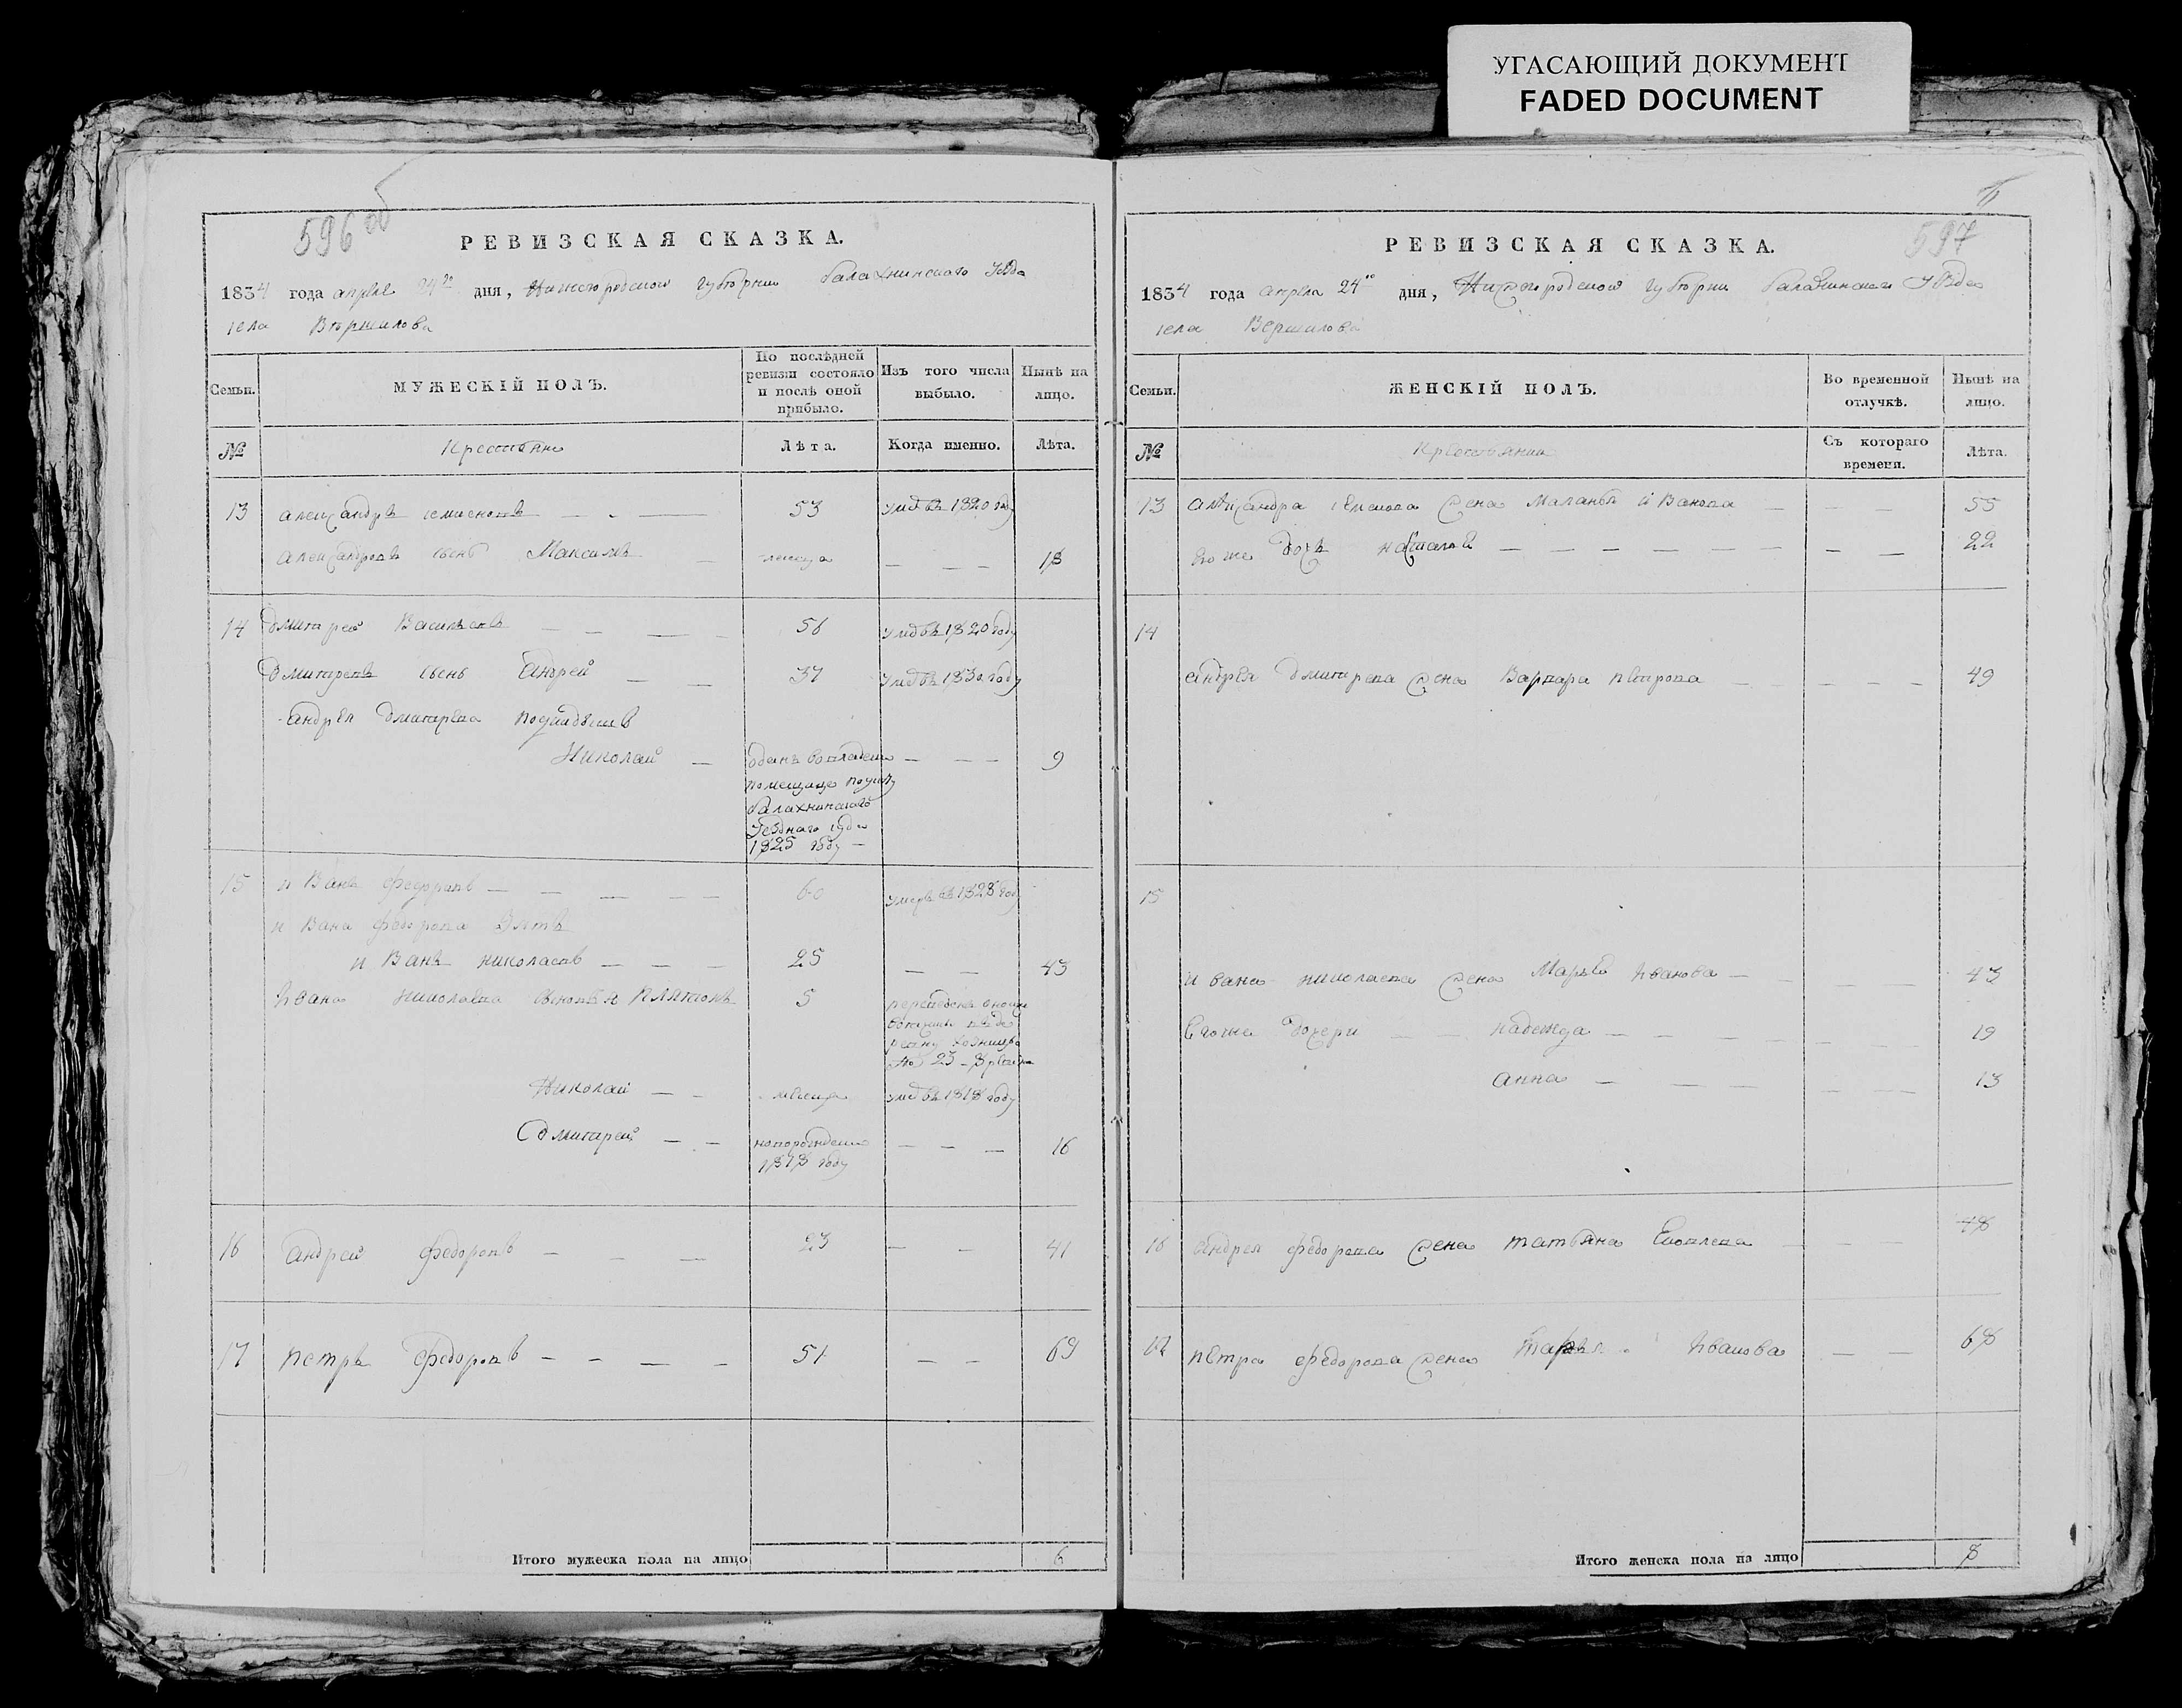 УГАСАЮЩИЙ ДОКУМЕНТ
FADED DOCUMENT
596 об
РЕВИЗСКАЯ СКАЗКА.
1834 года апреля 24го дня, Нижегородской губернии балахнинского уезда
села Вершилова
Семьи. МУЖЕСКІЙ ПОЛЪ. По послѣдней ревизіи состояло и послѣ оной прибыло. Изъ того числа выбыло. Нынѣ на лицо.
№ Крестьяне Лѣта. Когда именно. Лѣта.
13 александръ семионовъ 53 умдвъ 1820 году
александровъ сынъ Максимъ 18
14 дмитрей Васильевъ 56 умдвъ 1820 году
дмитревъ сынъ андрей 37 умдвъ 1830 году
андрея дмитрева
Николай 9
помещице
балахнинского
уезднаго суда
1825 году
15 иВанъ федоровъ 60 умеръ въ 1828 году
иВана федорова зять
иВанъ николаевъ 25 43
ивана николаева сыновья платонъ 5
Николай умдвъ 1818 году
дмитрей 16
1818 году
16 андрей федоровъ 23 41
17 петръ федоровъ 51 69
Итого мужеска пола на лицо 6
597
РЕВИЗСКАЯ СКАЗКА.
1834 года апреля 24го дня, Нижегородской губерни балахнинскаго уезда
села Вершилова
Семьи. ЖЕНСКІЙ ПОЛЪ. Во временной отлучкѣ. Нынѣ на лицо.
№ Крестьянки Съ котораго времени. Лѣта.
13 александра семенова жена маланья иВанова 55
ево же дочь наталья 22
14
андрея дмитрева жена Варвара петрова 49
15
ивана николаева жена Марья иванова 43
Евоже дочери надежда 19
анна 13
16 андрея федорова жена татьяна 48
17 петра федорова жена иванова 68
Итого женска пола на лицо 8